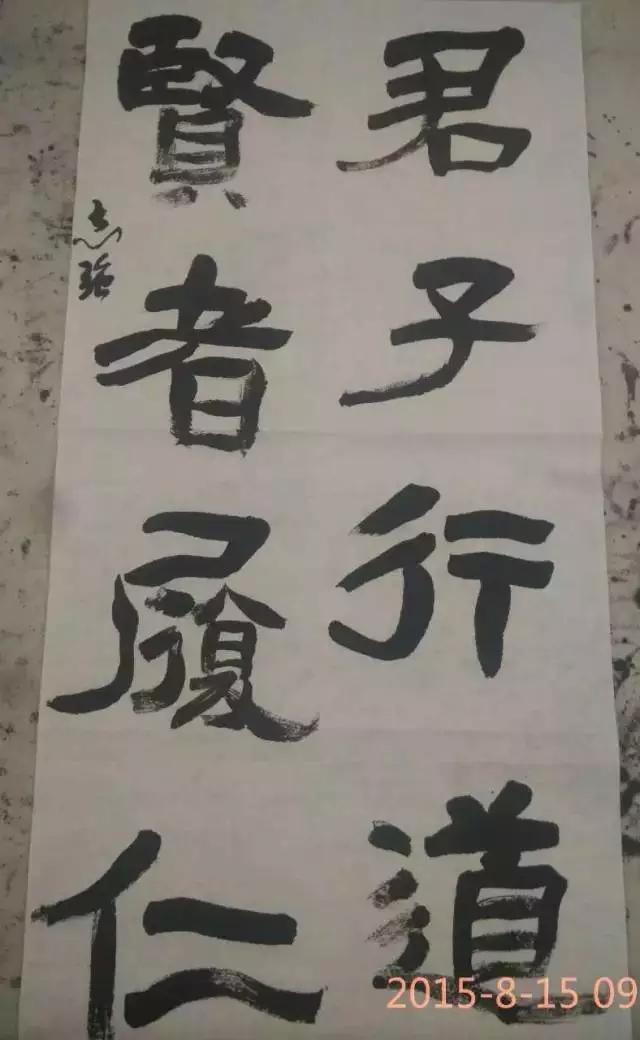 君子行道
賢者履仁
志强
2015-8-15 09